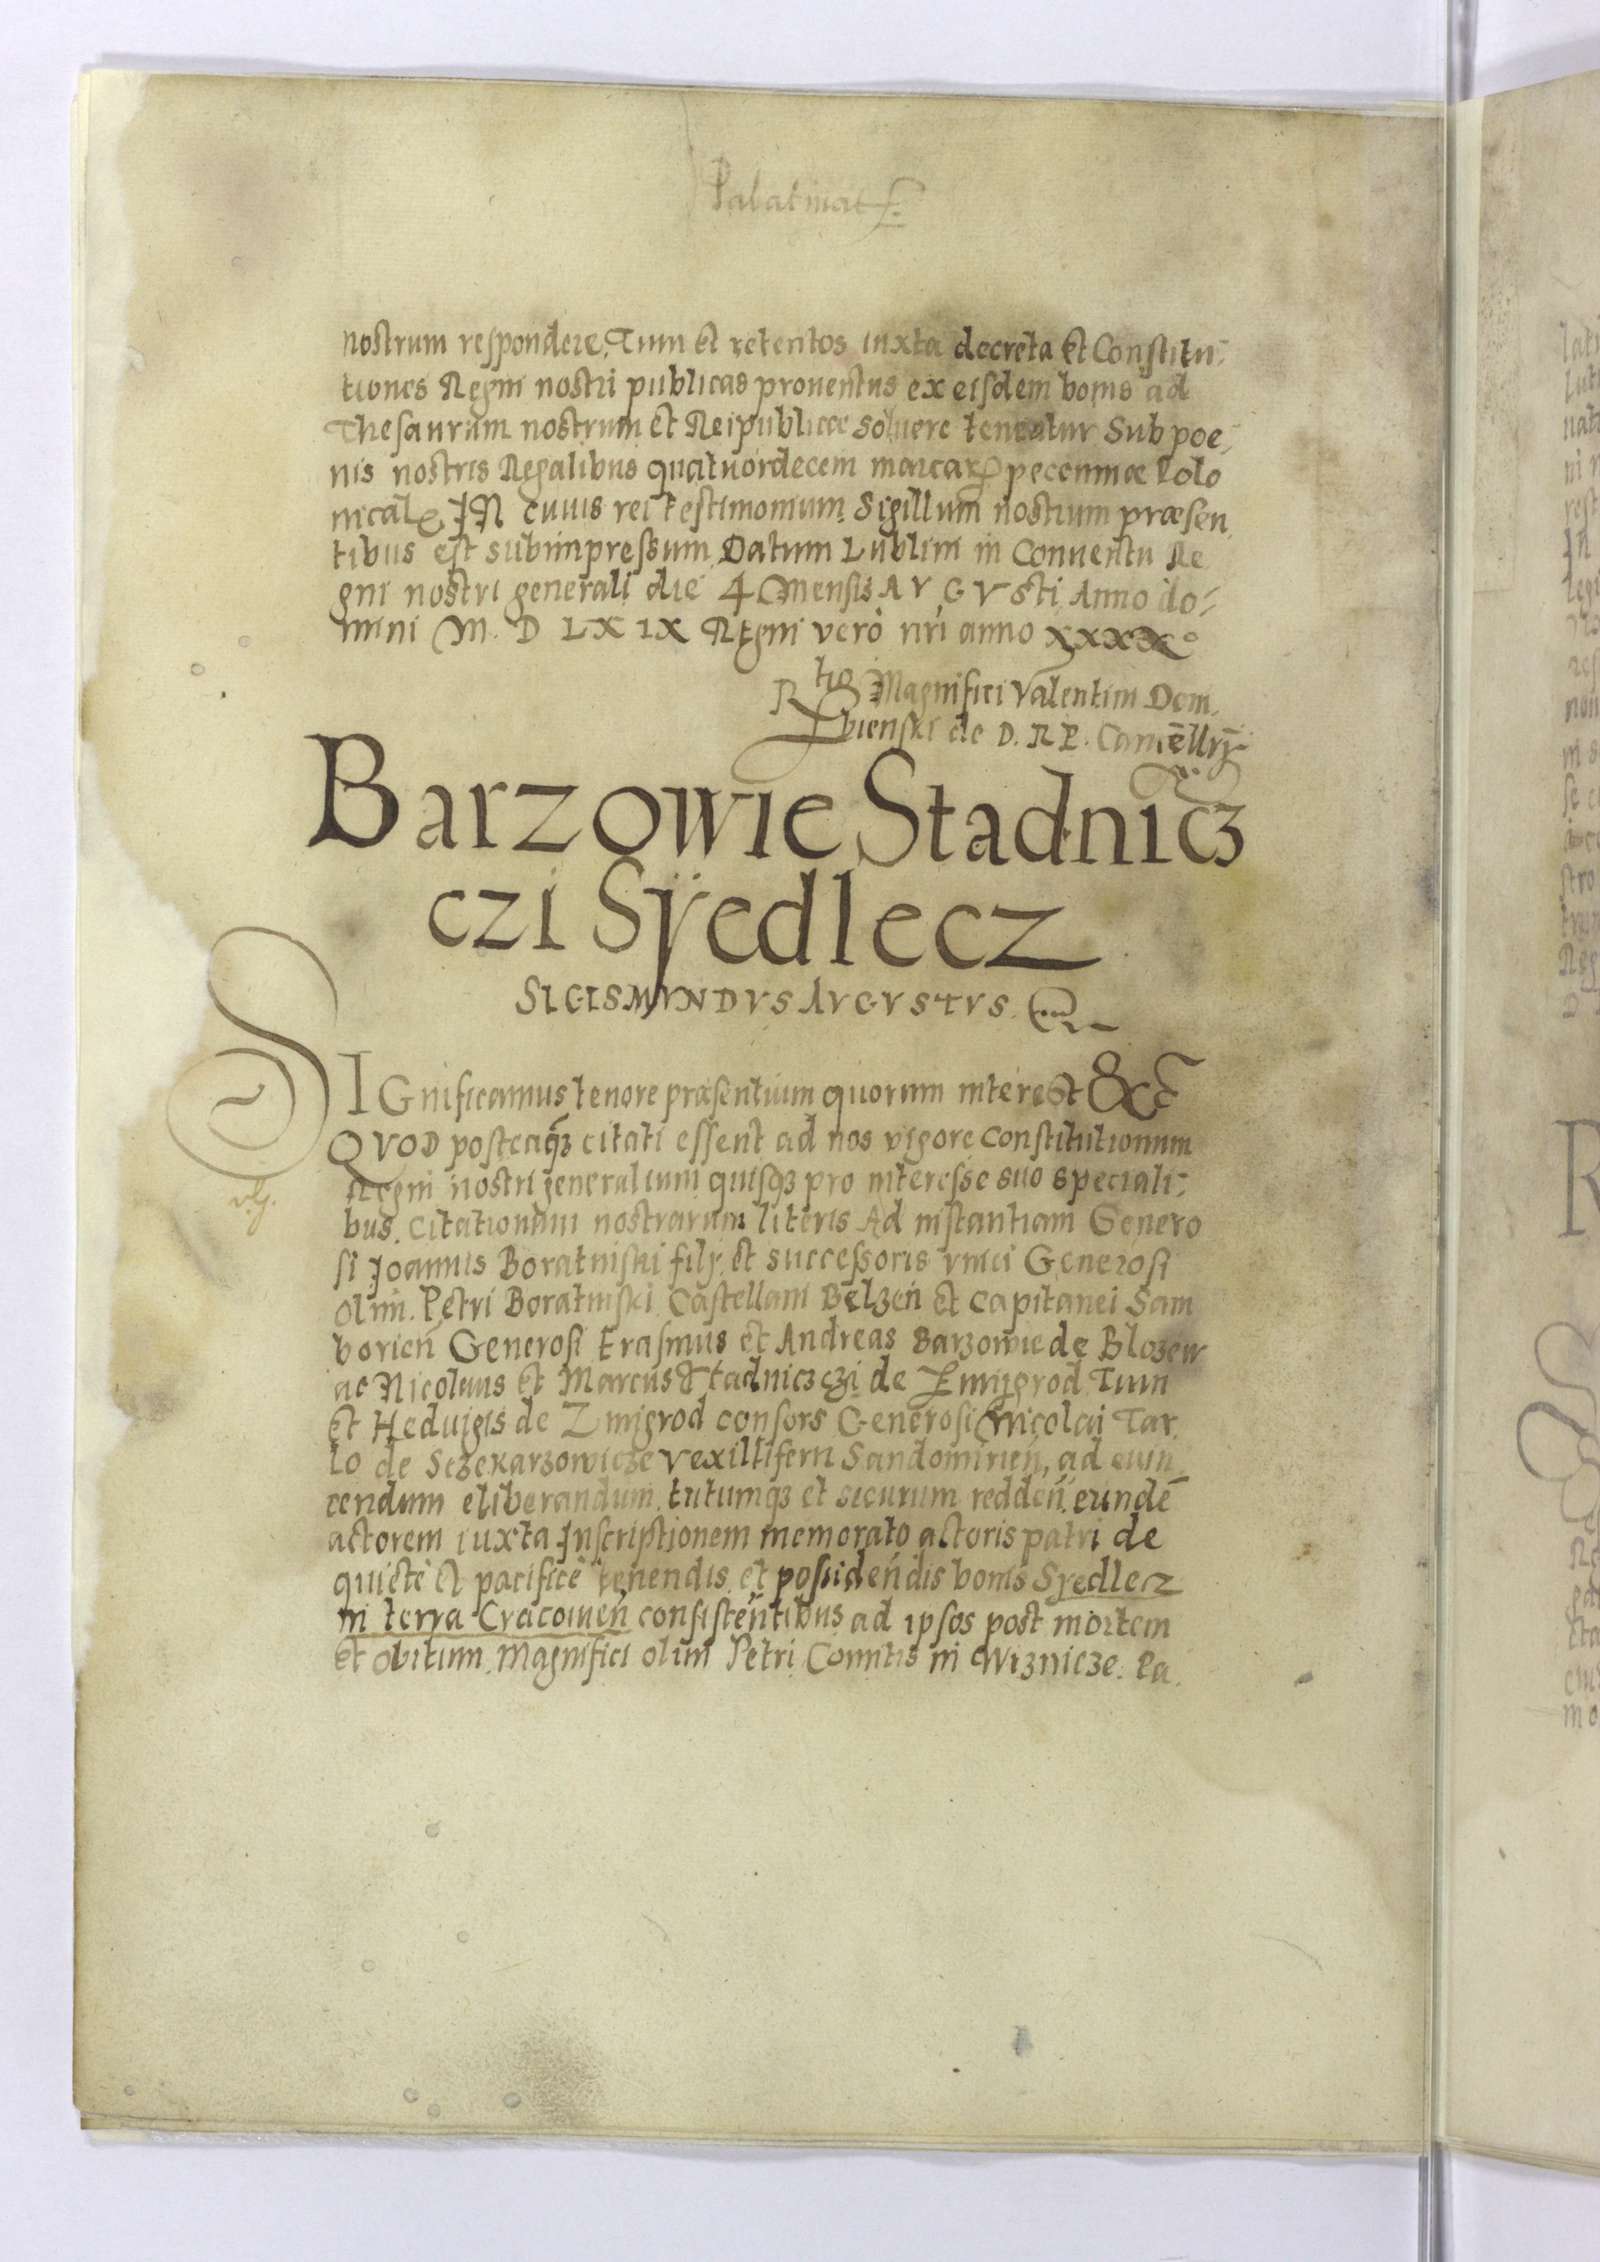 Palatinat
nostrum respondere, Tum et retentos iuxta decreta et Constitu-
tiones Regni nostri publicas proventus ex eisdem bonis ad
Thesaurum nostrum et Reipublicæ soluere teneatur Sub poe-
nis nostris Regalibus quatuordecem marcar pecuniæ Polo
nical. IN cuius rei testimonium Sigillum nostrum præsen
tibus est subimpressum Datum Lublini in Conuentu Re
gni nostri generali die 4 Mensis AVGVsti Anno do-
mini M. D LXIX Regni verò nri anno
Rtio Magnifici Valentini Dem
bienski de D. R P. Cancellrij
Barzowie Stadnicz
czi Sÿedlecz
SIGISMVNDVS AVGVSTVS.
SIGnificamus tenore præsentium quorum interest &c
QVOD posteaqz citati essent ad nos vigore constitutionum
Regni nostri generalium quisqz pro interesse suo speciali-
bus. Citationum nostrarum literis Ad instantiam Genero
si Joannis Boratinski filij et successoris vnici Generosi
olim. Petri Boratinski Castellani Belzeñ et Capitanei Sam
borieñ Generosi Erasmus et Andreas Barzowie de Blozew
ac Nicolaus et Marcus Stadniczczi de Zmigrod Tum
et Heduigis de Zmigrod consors Generosi Nicolai Tar
lo de Sczekarzowicze vexilliferi Sandomirieñ, ad euin
cendum eliberandum tutumqz et securum reddeñ eundē
actorem iuxta Inscriptionem memorato actoris patri de
quietè et pacificè tenendis et possideñdis bonis Syedlecz
in terra Cracouieñ consisteñtibus ad ipsos post mortem
et obitum Magnifici olim Petri Comitis in Wiznicze. Pa